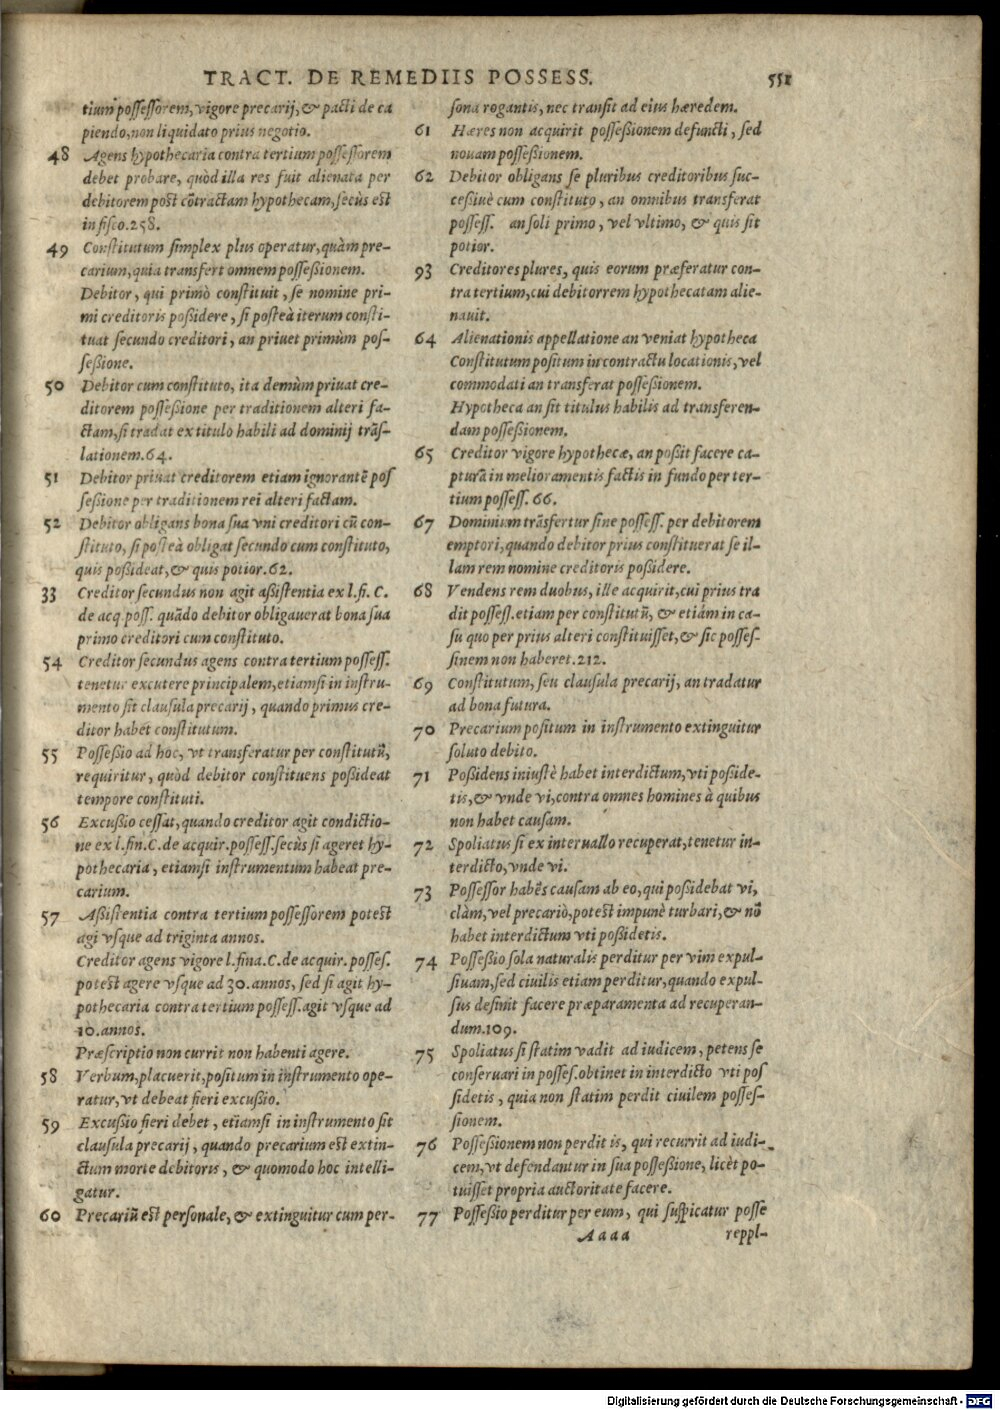 TRACT. DE REMEDIIS POSSESS. 551
tium possessorem, vigore precarij, & pacti de ca
piendo, non liquidato prius negotio.
48 Agens hypothecaria contra tertium possessorem
debet probare, quòd illa res fuit alienata per
debitorem post cõtractam hypothecam, secùs est
in fisco. 258.
49 Constitutum simplex plus operatur, quàm pre-
carium, quia transfert omnem possessionem.
Debitor, qui primò constituit, se nomine pri-
mi creditoris possidere, si posteà iterum consti-
tuat secundo creditori, an priuet primùm pos-
sessione.
50 Debitor cum constituto, ita demùm priuat cre-
ditorem possessione per traditionem alteri fa-
ctam, si tradat ex titulo habili ad dominij trãs-
lationem. 64.
51 Debitor priuat creditorem etiam ignorantẽ pos
sessione per traditionem rei alteri factam.
52 Debitor obligans bona sua vni creditori cũ con-
stituto, si posteà obligat secundo cum constituto,
quis possideat, & quis potior. 62.
33 Creditor secundus non agit assistentia ex l. fi. C.
de acq. poss. quãdo debitor obligauerat bona sua
primo creditori cum constituto.
54 Creditor secundus agens contra tertium possess.
tenetur excutere principalem, etiamsi in instru-
mento sit clausula precarij, quando primus cre-
ditor habet constitutum.
55 Possessio ad hoc, vt transferatur per constitutũ,
requiritur, quòd debitor constituens possideat
tempore constituti.
56 Excussio cessat, quando creditor agit condictio-
ne ex l. fin. C. de acquir. possess. secùs si ageret hy-
pothecaria, etiamsi instrumentum habeat pre-
carium.
57 Assistentia contra tertium possessorem potest
agi vsque ad triginta annos.
Creditor agens vigore l. fina. C. de acquir. posses.
potest agere vsque ad 30. annos, sed si agit hy-
pothecaria contra tertium possess. agit vsque ad
10. annos.
Præscriptio non currit non habenti agere.
58 Verbum, placuerit, positum in instrumento ope-
ratur, vt debeat fieri excussio.
59 Excussio fieri debet, etiamsi in instrumento sit
clausula precarij, quando precarium est extin-
ctum morte debitoris, & quomodo hoc intelli-
gatur.
60 Precariũ est personale, & extinguitur cum per-
sona rogantis, nec transit ad eius hæredem.
61 Hæres non acquirit possessionem defuncti, sed
nouam possessionem.
62 Debitor obligans se pluribus creditoribus suc-
cessiuè cum constituto, an omnibus transferat
possess. an soli primo, vel vltimo, & quis sit
potior.
93 Creditores plures, quis eorum præferatur con-
tra tertium, cui debitorrem hypothecatam alie-
nauit.
64 Alienationis appellatione an veniat hypotheca
Constitutum positum in contractu locationis, vel
commodati an transferat possessionem.
Hypotheca an sit titulus habilis ad transferen-
dam possessionem.
65 Creditor vigore hypothecæ, an possit facere ca-
pturã in melioramentis factis in fundo per ter-
tium possess. 66.
67 Dominium trãsfertur sine possess. per debitorem
emptori, quando debitor prius constituerat se il-
lam rem nomine creditoris possidere.
68 Vendens rem duobus, ille acquirit, cui prius tra
dit possess. etiam per constitutũ, & etiám in ca-
su quo per prius alteri constituisset, & sic posses-
sinem non haberet. 212.
69 Constitutum, seu clausula precarij, an tradatur
ad bona futura.
70 Precarium positum in instrumento extinguitur
soluto debito.
71 Possidens iniustè habet interdictum, vti posside-
tis, & vnde vi, contra omnes homines à quibus
non habet causam.
72 Spoliatus si ex interuallo recuperat, tenetur in-
terdicto, vnde vi.
73 Possessor habẽs causam ab eo, qui possidebat vi,
clàm, vel precariò, potest impunè turbari, & nõ
habet interdictum vti possidetis.
74 Possessio sola naturalis perditur per vim expul-
siuam, sed ciuilis etiam perditur, quando expul-
sus desinit facere præparamenta ad recuperan-
dum. 109.
75 Spoliatus si statim vadit ad iudicem, petens se
conseruari in posses. obtinet in interdicto vti pos
sidetis, quia non statim perdit ciuilem posses-
sionem.
76 Possessionem non perdit is, qui recurrit ad iudi-
cem, vt defendantur in sua possessione, licèt po-
tuisset propria auctoritate facere.
77 Possessio perditur per eum, qui suspicatur posse
Aaaa reppl-
Digitalisierung gefördert durch die Deutsche Forschungsgemeinschaft - DFG